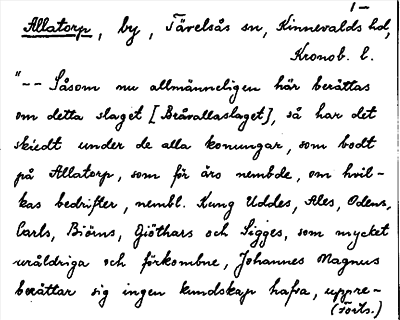 1-
Allatorp, by, Tävelsås sn, Kinnevalds hd,
Kronob. l.
"-- Såsom nu allmänneligen här berättas
om detta slaget [Bråvallaslaget], så har det
skiedt under de alla konungar, som bodt
på Allatorp, som för äro nembde, om hvil-
kas bedrifter, nembl. Kung Uddes, Ales, Odens,
Carls, Biörns, Giöthars och Sigges, som mycket
uråldriga och förkombne, Johannes Magnus
berättar sig ingen kundskap hafva, uppre-
(Forts.)